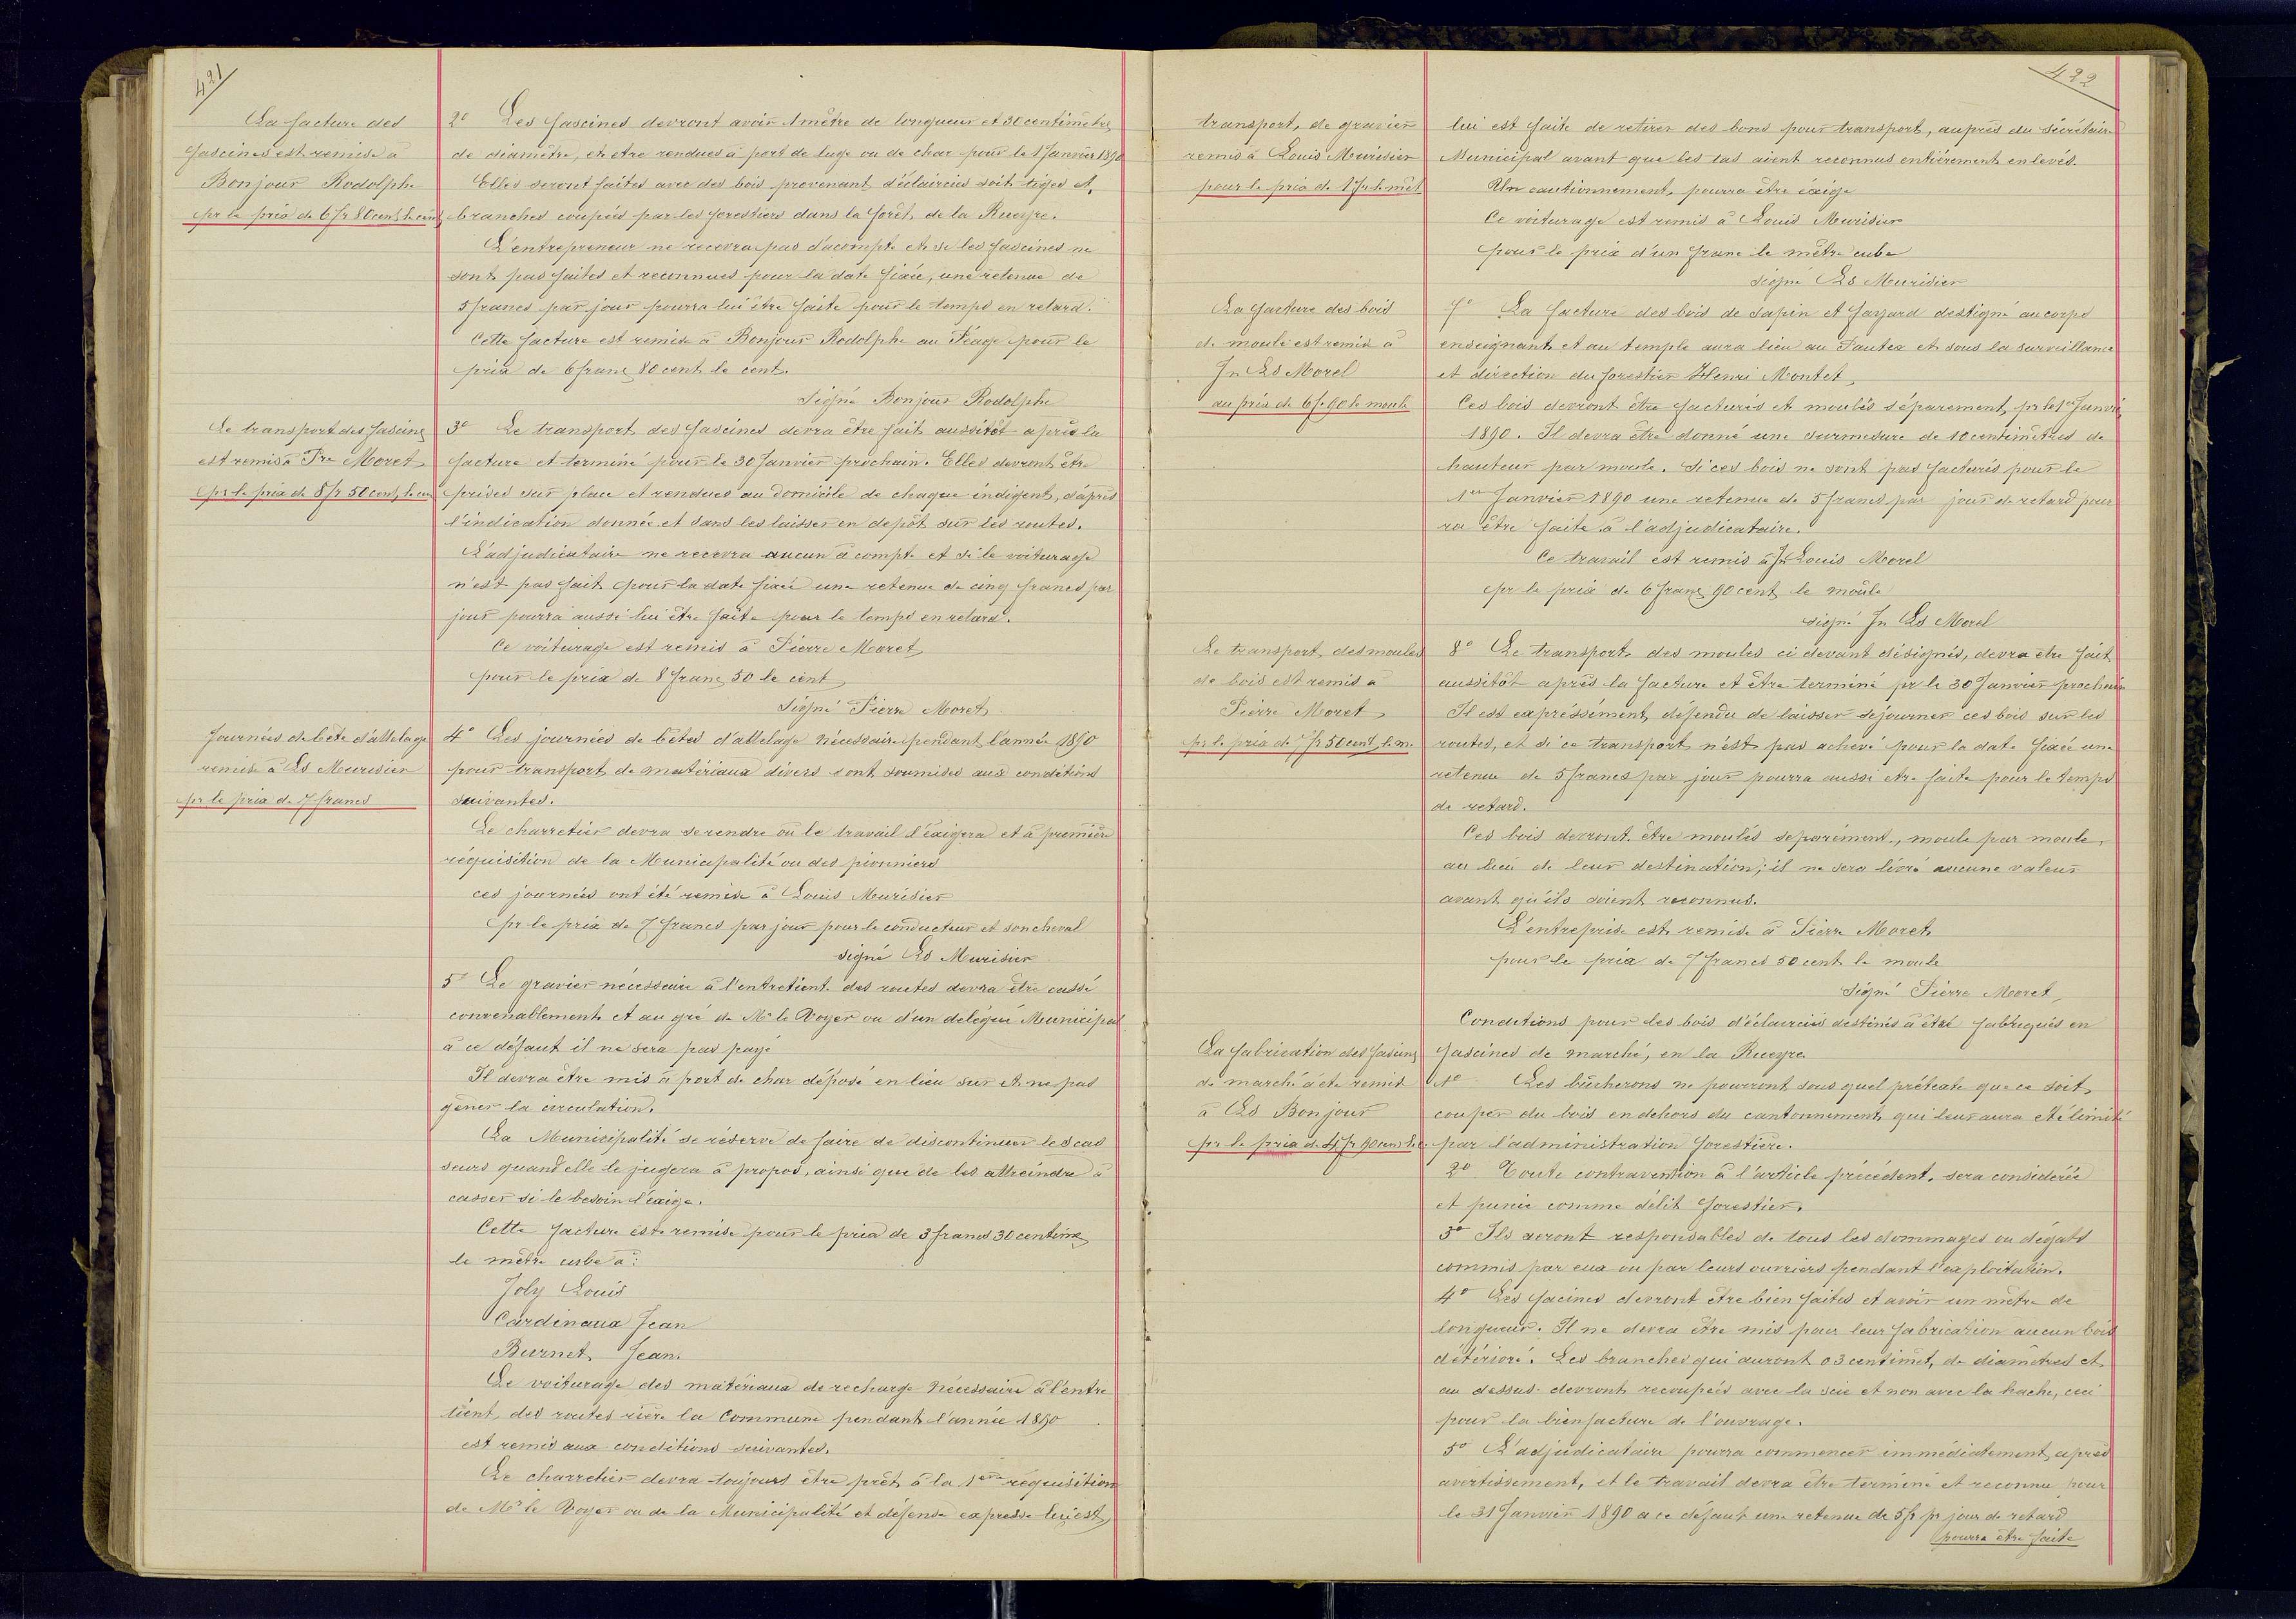 421
La facture des
fascines est remise à
Bonjour Rodolphe
pr le prix de 6 fr 80 cent le cent
2° Les fascines devront avoir 1 mètre de longueur et 30 centimètres
de diamètre, et etre rendues à port de luge ou de char pour le 1 Janvier 1890
Elles seront faites avec des bois provenant d'éclaircies soit tiges et
branches coupées par les forestiers dans la forêt de la Rueyre.
L'entrepreneur ne recevra pas d'acompte et si les fascines ne
sont pas faites et reconnues pour la date fixée, une retenue de
5 francs par jour pourra lui être faite pour le temps en retard.
Cette facture est remise à Bonjour Rodolphe au Péage pour le
prix de 6 franc 80 cent le cent.
Signé Bonjour Rodolphe
Le transport des fascines
est remis à Pre Moret
pr le prix de 8 fr 50 cent, le cen
3° Le transport des fascines devra être fait aussitôt après la
facture et terminé pour le 30 Janvier prochain. Elles devront être
prises sur place et rendues au domicile de chaque indigent, d'après
l'indication donnée et sans les laisser en depôt sur les routes.
L'adjudicataire ne recevra aucun à compte et si le voiturage
n'est pas fait pour la date fixée une retenue de cinq francs par
jour pourra aussi lui être faite pour le temps en retard.
Ce voiturage est remis à Pierre Moret
pour le prix de 8 franc 50 le cent
Signé Pierre Moret
Journées de bête d'attelage
remise à Ls Murisier
pr le prix de 7 francs
4° Les journées de bêtes d'attelage nécessaire pendant l'année 1890
pour transport de matériaux divers sont soumises aux conditions
suivantes.
Le charretier devra se rendre où le travail l'éxigera et à première
réquisition de la Municipalité ou des pionniers
ces journées ont été remise à Louis Murisier
pr le prix de 7 francs par jour pour le conducteur et son cheval
signé Ls Murisier
5° Le gravier nécessaire à l'entretient des routes devra être cassé
convenablement et au gré de Mr le Voyer ou d'un délégué Municipal
à ce défaut il ne sera pas payé
Il devra être mis à port de char déposé en lieu sur et ne pas
gêner la circulation.
La Municipalité se réserve de faire de discontinuer les cas
seurs quand elle le jugera à propos, ainsi que de les attreindre à
casser si le besoin l'éxige.
Cette facture est remise pour le prix de 3 francs 30 centime
le mètre cube à:
Joly Louis
Cardinaux Jean
Burnet Jean.
Le voiturage des matériaux de recharge nécessaire à l'entre
tient des routes rière la Commune pendant l'année 1890
est remis aux conditions suivantes.
Le charretier devra toujours être prêt à la 1ère réquisition
de Mr le Voyer ou de la Municipalité et défense expresse lui est
422
transport, de gravier
remis à Louis Murisier
pour le prix de 1 fr le mèt
lui est faite de retirer des bons pour transport, auprès du sécrétaire
Municipal avant que les tas aient reconnus entièrement enlevés.
Un cautionnement pourra être éxigé
Ce voiturage est remis à Louis Murisier
pour le prix d'un franc le mètre cube
signé Ls Murisier
La facture des bois
de moule est remise à
Jn Ls Morel
au prix de 6 f. 90 le moule
7° La facture des bois de sapin et fayard destigné au corps
enseignant et au temple aura lieu au Pautex et sous la surveillance
et direction du forestier Henri Montet
Ces bois devront être facturés et moulés séparement, pr le 1er Janvier
1890. Il devra être donné une surmesure de 10 centimètres de
hauteur par moule. Si ces bois ne sont pas facturés pour le
1er Janvier 1890 une retenue de 5 francs par jour de retard pour
ra être faite à l'adjudicataire.
Ce travail est remis à Jn Louis Morel
pr le prix de 6 franc 90 cent le moule
signé Jn Ls Morel
Le transport des moules
de bois est remis à
Pierre Moret
pr le prix de 7 fr 50 cent le m.
8° Le transport des moules ci devant désignés, devra etre fait
aussitôt après la facture et être terminé pr le 30 Janvier prochain
Il est expréssément défendu de laisser séjourner ces bois sur les
routes, et si ce transport n'est pas achevé pour la date fixée une
retenue de 5 francs par jour pourra aussi etre faite pour le temps
de retard.
Ces bois devront être moulés separément, moule par moule,
au lieu de leur destination; il ne sera livré aucune valeur
avant qu'ils soient reconnus.
L'entreprise est remise à Pierre Moret
pour le prix de 7 francs 50 cent le moule
Signé Pierre Moret
Conditions pour les bois d'éclaircies destinés à être fabriqués en
fascines de marché, en la Rueyre
La fabrication des fascines
de marché a été remise
à Ls Bonjour
pr le prix de 4 fr 90 cent le c
1° Les bûcherons ne pourront sous quel prétexte que ce soit
couper du bois en dehors du cantonnement qui leur aura été limité
par l'administration forestière.
2° Toute contravention à l'article précédent, sera considérée
et punie comme délit forestier.
3° Ils seront responsables de tous les dommages ou dégats
commis par eux ou par leurs ouvriers pendant l'exploitation.
4° Les facines devront être bien faites et avoir un mètre de
longueur. Il ne devra être mis pour leur fabrication aucun bois
détérioré. Les branches qui auront 03 centimèt, de diamètres et
au dessus devront recoupées avec la scie et non avec la hache, ceci
pour la bienfacture de l'ouvrage.
5° L'adjudicataire pourra commencer immédiatement après
avertissement, et le travail devra être terminé et reconnu pour
le 31 Janvier 1890 a ce défaut une retenue de 5 fr pr jour de retard
pourra être faite